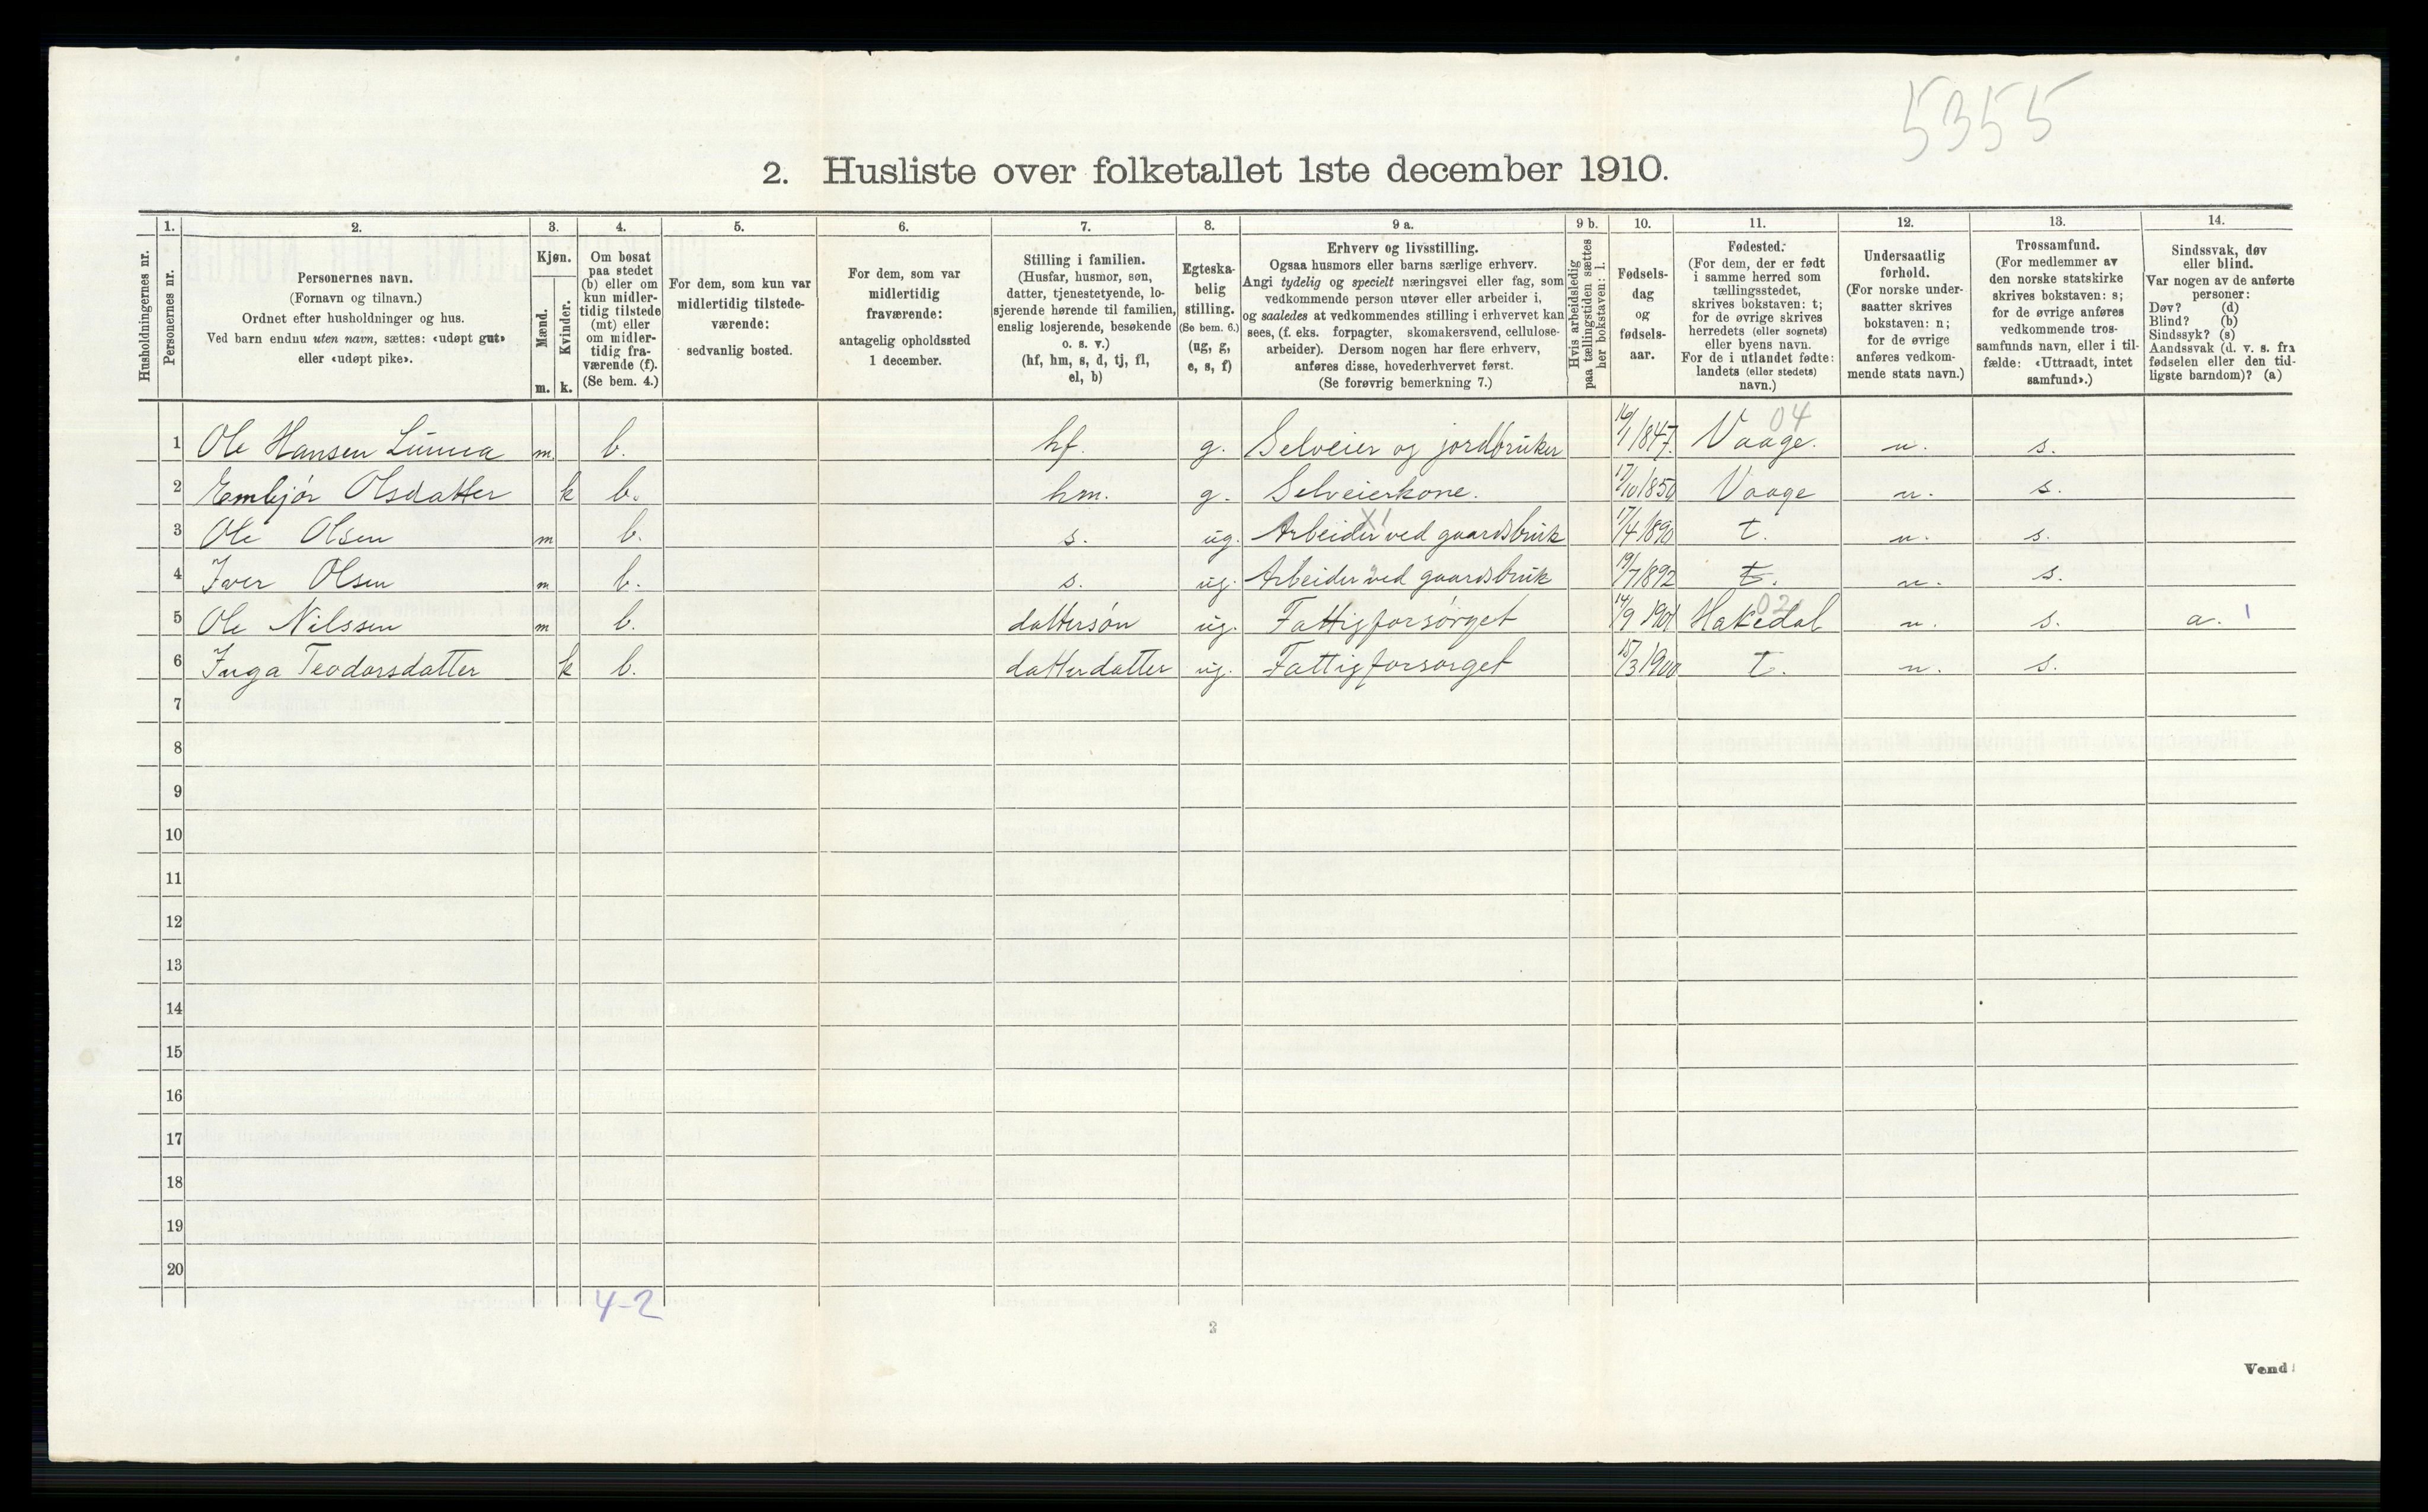 5355
2. Husliste over folketallet 1ste december 1910.
Husholdningernes nr.
1.
Personernes nr.
2.
Personernes navn.
(Fornavn og tilnavn.)
Ordnet efter husholdninger og hus.
Ved barn endnu uten navn, sættes: «udøpt gut»
eller «udøpt pike».
3.
Kjøn.
Mænd.
m.
Kvinder.
k.
4.
Om bosat
paa stedet
(b) eller om
kun midler-
tidig tilstede
(mt) eller
om midler-
tidig fra-
værende (f).
(Se bem. 4.)
5.
For dem, som kun var
midlertidig tilstede-
værende:
sedvanlig bosted.
6.
For dem, som var
midlertidig
fraværende:
antagelig opholdssted
1 december.
7.
Stilling i familien.
(Husfar, husmor, søn,
datter, tjenestetyende, lo-
sjerende hørende til familien,
enslig losjerende, besøkende
o. s. v.)
(hf, hm, s, d, tj, fl,
el, b)
8.
Egteska-
belig
stilling.
(Se bem. 6.)
(ug, g,
e, s, f)
9 a.
Erhverv og livsstilling.
Ogsaa husmors eller barns særlige erhverv.
Angi tydelig og specielt næringsvei eller fag, som
vedkommende person utøver eller arbeider i,
og saaledes at vedkommendes stilling i erhvervet kan
sees, (f. eks. forpagter, skomakersvend, cellulose-
arbeider). Dersom nogen har flere erhverv,
anføres disse, hovederhvervet først.
(Se forøvrig bemerkning 7.)
9 b.
Hvis arbeidsledig
paa tællingstiden sættes
her bokstaven: l.
10.
Fødsels-
dag
og
fødsels-
aar.
11.
Fødested.
(For dem, der er født
i samme herred som
tællingsstedet,
skrives bokstaven: t;
for de øvrige skrives
herredets (eller sognets)
eller byens navn.
For de i utlandet fødte:
landets (eller stedets)
navn.)
12.
Undersaatlig
forhold.
(For norske under-
saatter skrives
bokstaven: n;
for de øvrige
anføres vedkom-
mende stats navn.)
13.
Trossamfund.
(For medlemmer av
den norske statskirke
skrives bokstaven: s;
for de øvrige anføres
vedkommende tros-
samfunds navn, eller i til-
fælde: «Uttraadt, intet
samfund».)
14.
Sindssvak, døv
eller blind.
Var nogen av de anførte
personer:
Døv? (d)
Blind? (b)
Sindssyk? (s)
Aandssvak (d. v. s. fra
fødselen eller den tid-
ligste barndom)? (a)
04
1 Ole Hansen m b. hf. g. Selveier og jordbruker 16/1 1847. Vaage. n. s.
2 Embjør Olsdatter k b. hm. g. Selveierkone. 17/10 1850 Vaage n. s.
3 Ole Olsen m b. s. ug. Arbeider ved gaardsbruk 17/4 1890 t. n. s.
4 Iver Olsen m b. s. ug. Arbeider ved gaardsbruk 19/7 1892 t. n. s.
02
5 Ole Nilssen m b. dattersøn ug. Fattigforsørget 14/9 1901 Hakedal n. s. a. 1
6 Inga Teodorsdatter k b. datterdatter ug. Fattigforsørget 15/3 1900 t. n. s.
7
8
9
10
11
12
13
14
15
16
17
18
19
20
4-2
Vend!